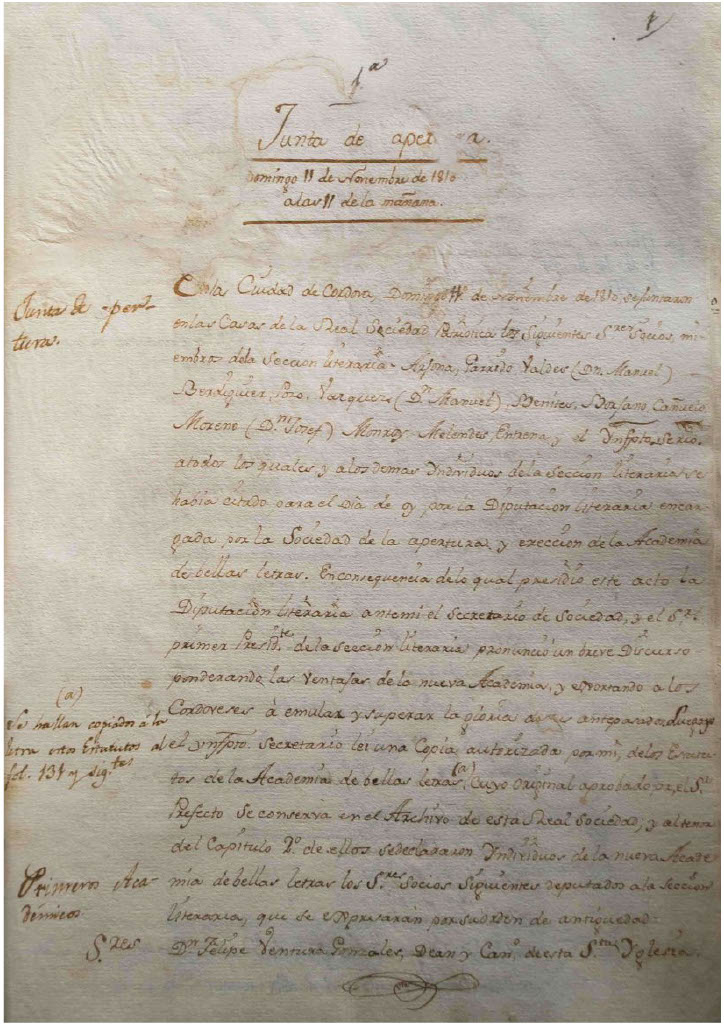 1
1.ª
Junta de aper a.
Domingo 11 de Noviembre de 1810
a las 11 de la mañana.
Junta de -per-
turas.
En la Ciudad de Cordova, Domingo 11 de Noviembre de 1810, se juntaron
en las Casas de la Real Sociedad Patriotica los Siguientes S.res Socios, mi-
embros de la Seccion literaria= Arjona, Garrido, Valdes (Dn. Manuel)
Berdiguier, Pozo, Vazquez (D.n Manuel), Benites, Cañuelo,
Moreno (D.n Josef) Monroy, Melendes, Entrena, y el Ynfpto. Serio.
a todos los quales, y a los demas Yndividuos de la Seccion literaria se
habia citado para el dia de oy por la Diputacion literaria encar-
gada por la Sociedad de la apertura, y ereccion de la Academia
de bellas letras. En consequencia de lo qual presidió este acto la
Diputacion literaria ante mi el Secretario de Sociedad, y el S.or
primer Presid.te de la seccion literaria pronunció un breve Discurso
ponderando las Ventajas de la nueva Academia, y exortando a los
Cordoveses á emular y superar la gloria de sus antepasados. Luego yo
el ynfpto. Secretario leí una Copia autorizada por mí, de los Estatu-
tos de la Academia de bellas letras (a), Cuyo Original aprobado por el S.or
Prefecto se conserva en el Archivo de esta Real Sociedad, y al tenor
del Capitulo 2.º de ellos se declararon Yndividuos de la nueva Acade-
mia de bellas letras los S.res Socios Siguientes deputados a la Seccion
literaria, que se expresarán por su orden de antigüedad.
D.n Felipe Ventura Gonzales, Dean y Can.º de esta S.ta Yglesia.
(a)
Se hallan copiados á la
letra estos Estatutos al
fol. 131 y sig.tes
Primeros Aca-
démicos
S.res